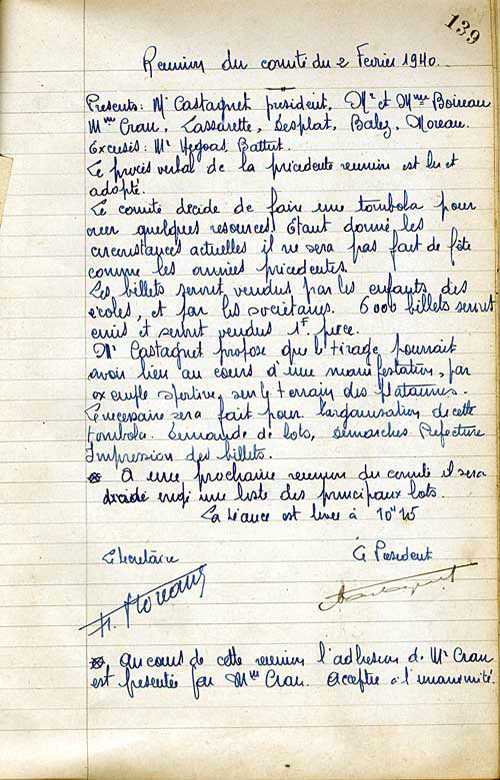 139
Reunion du comité du 2 Fevrier 1940.
Presents: Mr Castagnet president, Mr et Mme Boireau
Mme Crau, Lassarette, Desplat, Balez, Moreau.
Excusés: Mr Battut.
Le procès verbal de la précédente reunion est lu et
adopté.
Le comité décide de faire une tombola pour
créer quelques resources. Etant donné les
circonstances actuelles il ne sera pas fait de fête
comme les années précédentes.
Les billets seront vendus par les enfants des
écoles, et par les societaires. 6000 billets seront
émis et seront vendus 1F pièce.
Mr Castagnet propose que le tirage pourrait
avoir lieu au cours d'une manifestation, par
exemple sportive, sur le terrain des Platanes.
Le necessaire sera fait pour l'organisation de cette
tombola. Demande de lots, démarches Prefecture
Impression des billets.
* A une prochaine reunion du comité il sera
décidé une liste des principaux lots.
La séance est levée à 10H 15
Le Secrétaire Le President
H. Moreau
* Au cours de cette reunion l'adhesion de Mr Crau
est presentée par Mme Crau. Acceptée à l'unanimité.